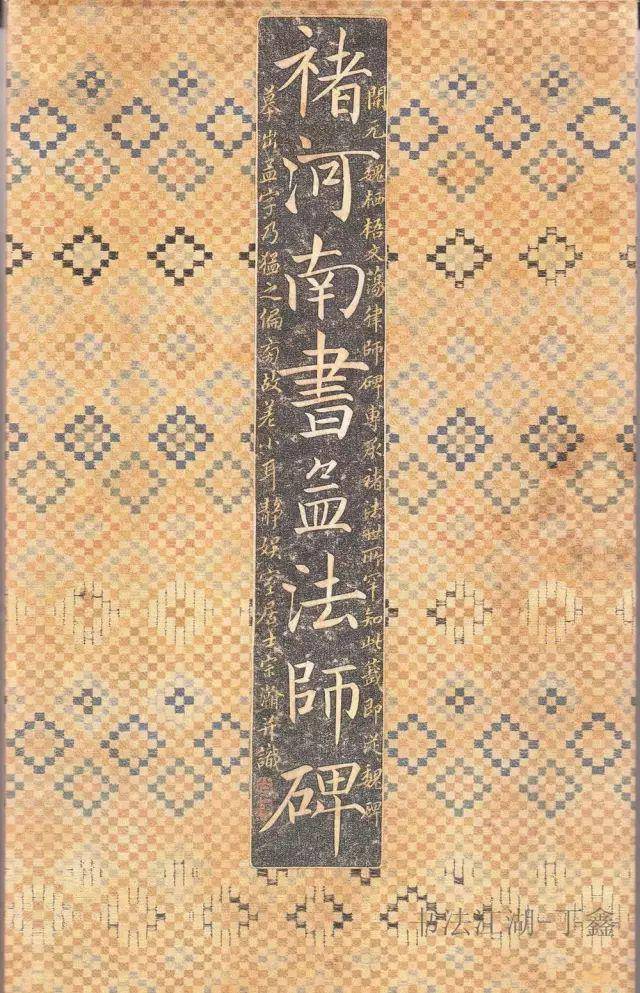 褚河南書孟法師碑
開元魏栖梧文蕩律師碑專承褚法世所罕知此籤即從魏碑
摹出孟字乃猛之偏旁故差小耳靜娱室居士宗瀚并識
书法江湖-丁鑫